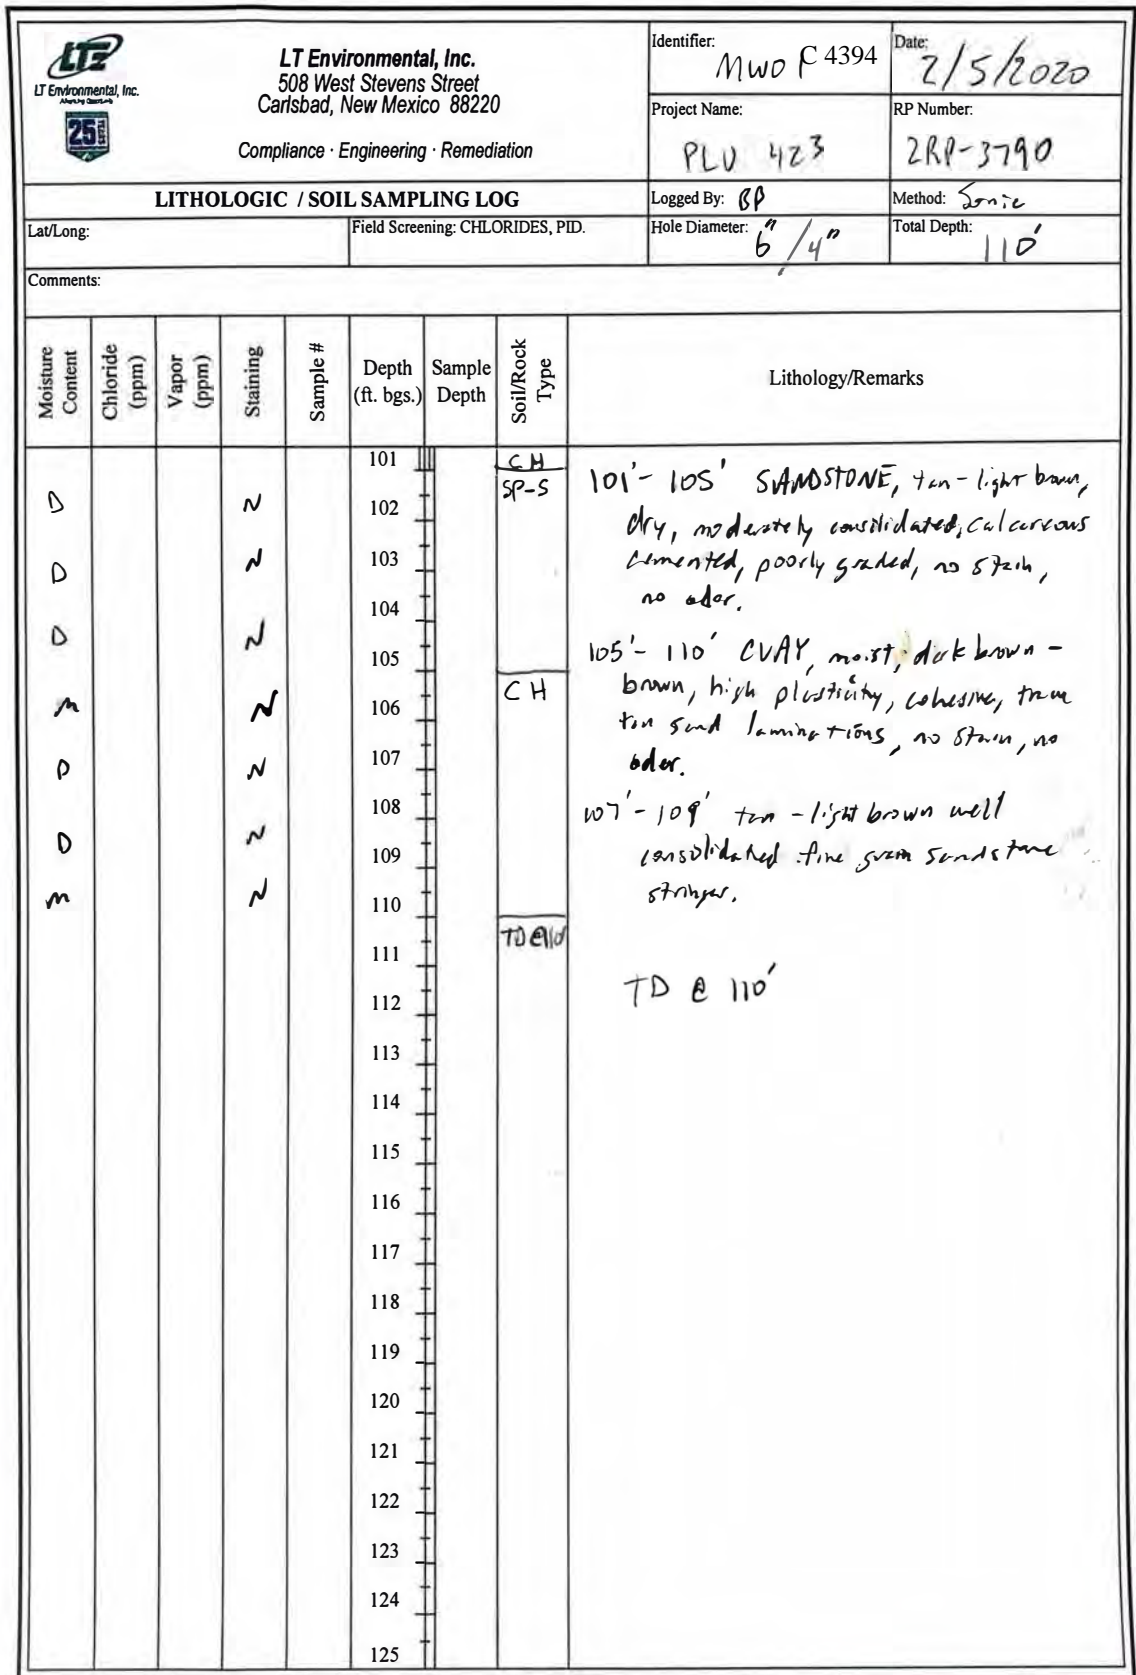 LTE
LT Environmental, Inc.
25
LT Environmental, Inc.
508 West Stevens Street
Carlsbad, New Mexico 88220
Compliance · Engineering · Remediation
Identifier:
MW0 C 4394
Date:
2/5/2020
Project Name:
PLU 423
RP Number:
2RP-3790
LITHOLOGIC / SOIL SAMPLING LOG
Logged By: BP
Method: Sonic
Lat/Long:
Field Screening: CHLORIDES, PID.
Hole Diameter: 6" / 4"
Total Depth: 110'
Comments:
Moisture Content
Chloride (ppm)
Vapor (ppm)
Staining
Sample #
Depth (ft. bgs.)
Sample Depth
Soil/Rock Type
Lithology/Remarks
101 CH
SP-S
101'- 105' SANDSTONE, tan - light brown,
D N 102
dry, moderately consilidated, calcareous
D N 103
cemented, poorly graded, no stain,
104
no odor.
D N 105
105'- 110' CLAY, moist, dark brown -
CH
m N 106
brown, high plasticity, cohesive, trace
tan sand laminations, no stain, no
D N 107
odor.
108
107'- 109' tan - light brown well
D N 109
consolidated fine grain sandstone
m N 110
stringer.
TD@110'
111
TD @ 110'
112
113
114
115
116
117
118
119
120
121
122
123
124
125